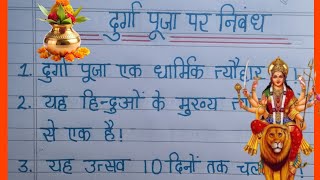 दुर्गा पूजा पर निबंध
1. दुर्गा पूजा एक धार्मिक त्यौहार
2. यह हिन्दुओं के मुख्य
से एक है!
3. यह उत्सव 10 दिनों तक